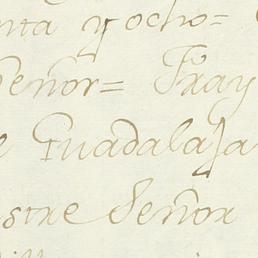 nta y ocho=
Señor= Fray
e Guadalaja
stre Señor